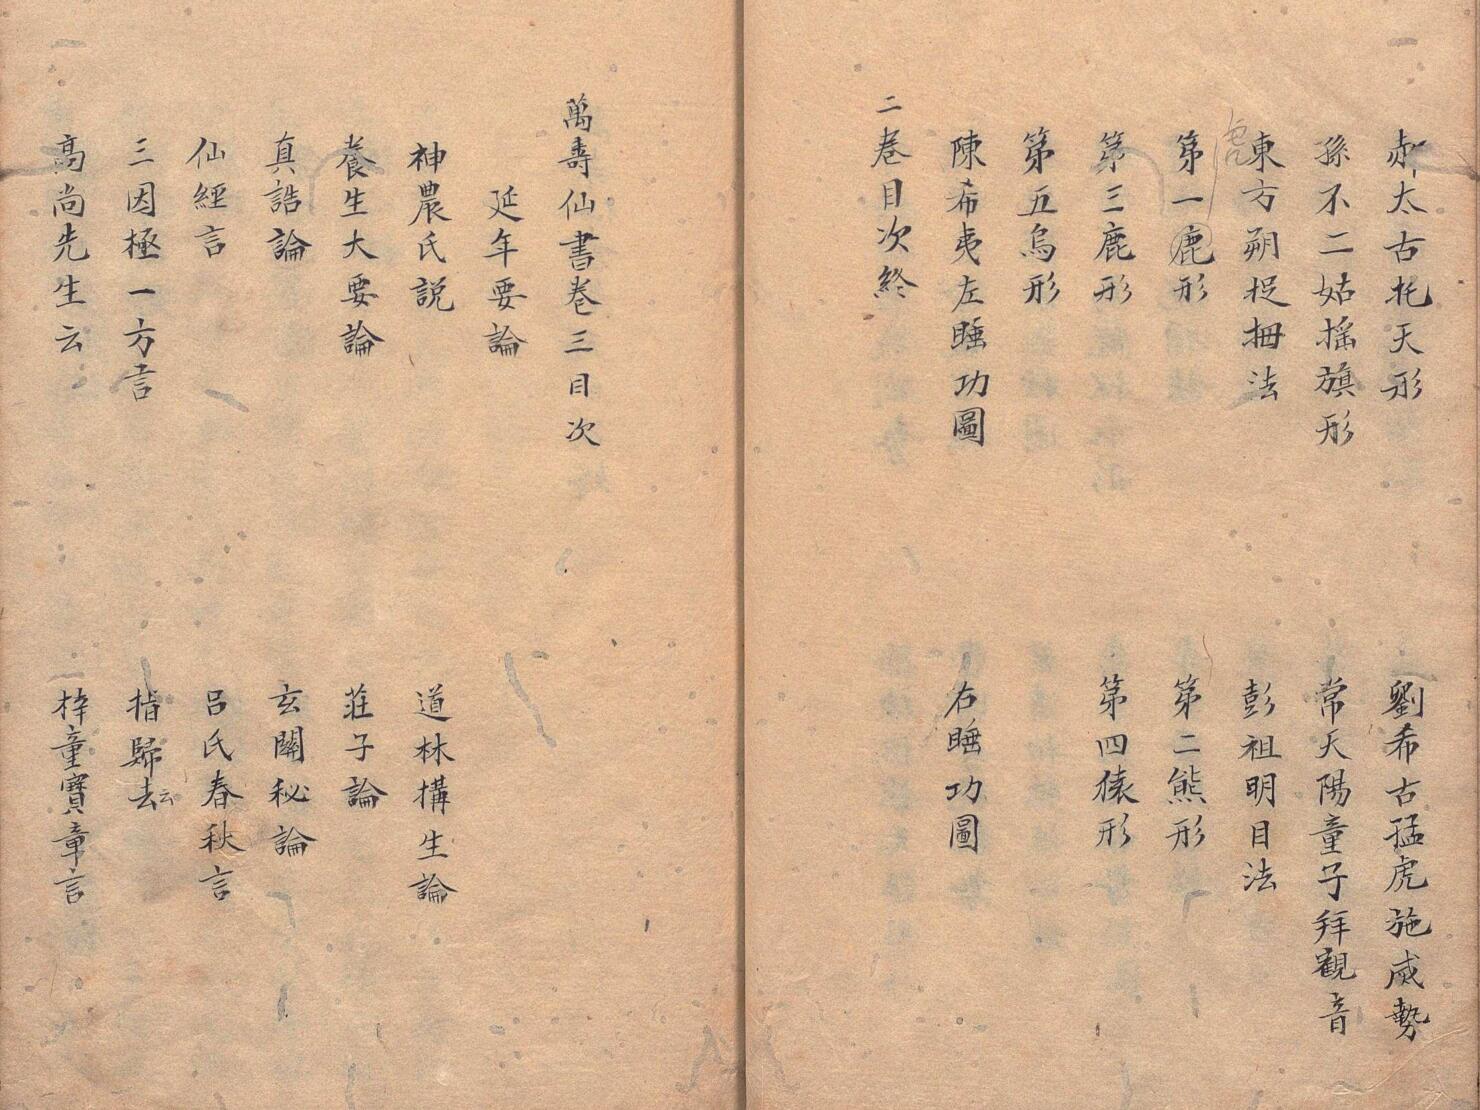 郝太古托天形
劉希古猛虎施威勢
孫不二姑搖旗形
常天陽童子拜觀音
東方朔捉拇法
彭祖明目法
虎
第一鹿形
第二熊形
第三鹿形
第四猿形
第五鳥形
陳希夷左睡功圖
右睡功圖
二卷目次終
萬壽仙書卷三目次
延年要論
神農氏説
道林構生論
養生大要論
莊子論
真誥論
玄關秘論
仙經言
呂氏春秋言
三因極一方言
指歸去云
高尚先生云
梓童寶章言